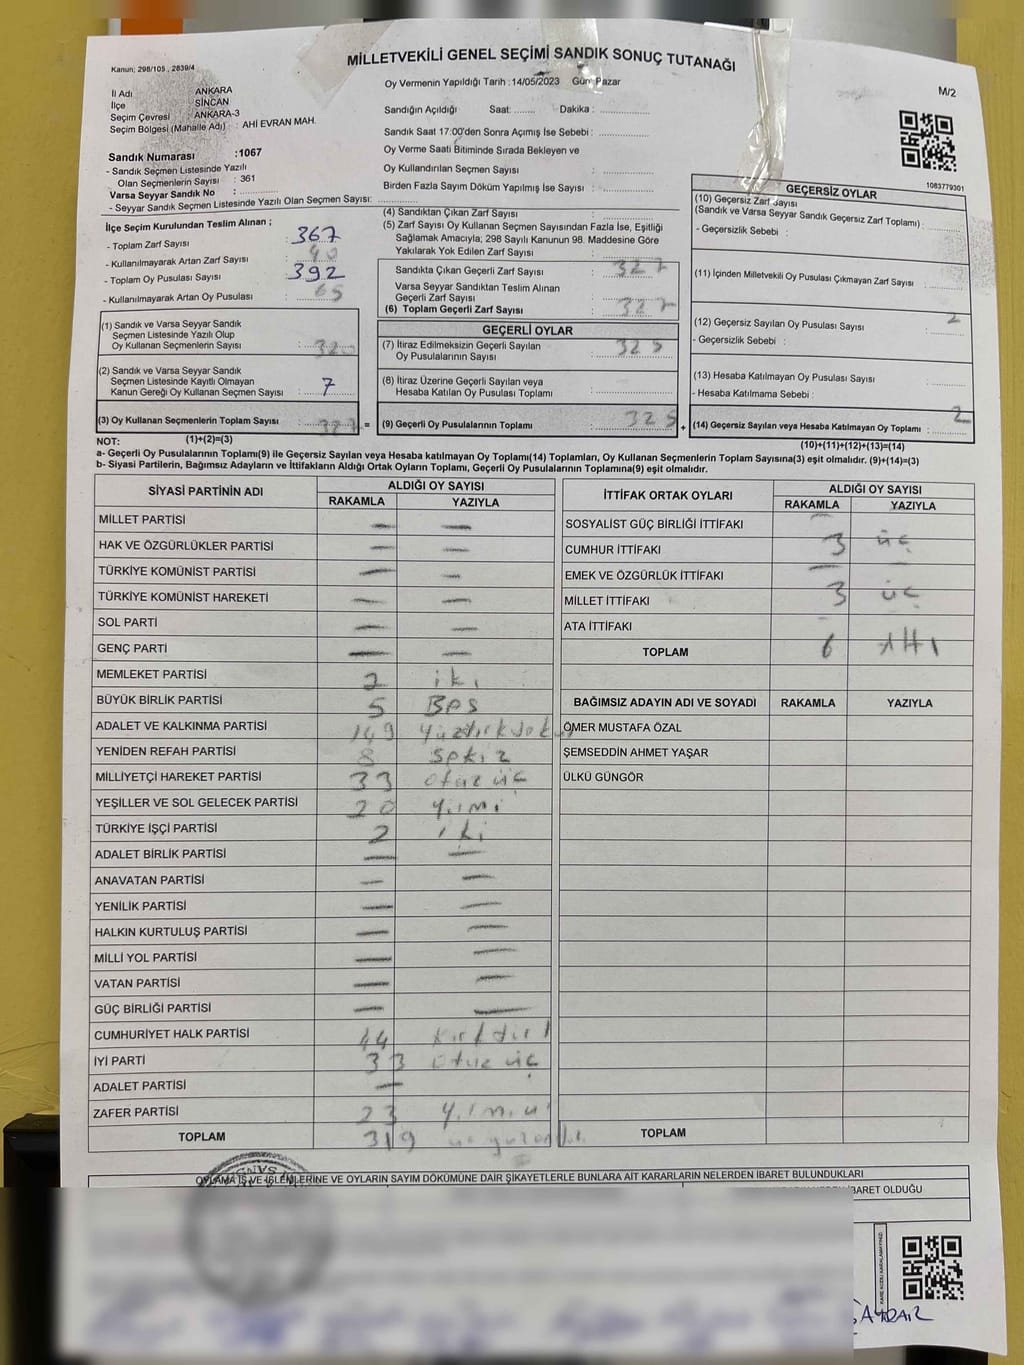 MİLLETVEKİLİ GENEL SEÇİMİ SANDIK SONUÇ TUTANAĞI
Kanun; 298/105 , 2839/4
M/2
İl Adı ANKARA
İlçe SİNCAN
Seçim Çevresi ANKARA-3
Seçim Bölgesi (Mahalle Adı) : AHİ EVRAN MAH.
Sandık Numarası :1067
- Sandık Seçmen Listesinde Yazılı
Olan Seçmenlerin Sayısı : 361
Varsa Seyyar Sandık No :
- Seyyar Sandık Seçmen Listesinde Yazılı Olan Seçmen Sayısı:
Oy Vermenin Yapıldığı Tarih : 14/05/2023 Gün: Pazar
Sandığın Açıldığı Saat: Dakika :
Sandık Saat 17:00'den Sonra Açımış İse Sebebi :
Oy Verme Saati Bitiminde Sırada Bekleyen ve
Oy Kullandırılan Seçmen Sayısı :
Birden Fazla Sayım Döküm Yapılmış İse Sayısı :
1083779301
İlçe Seçim Kurulundan Teslim Alınan ;
- Toplam Zarf Sayısı : 367
- Kullanılmayarak Artan Zarf Sayısı : 40
- Toplam Oy Pusulası Sayısı : 392
- Kullanılmayarak Artan Oy Pusulası : 65
(1) Sandık ve Varsa Seyyar Sandık
Seçmen Listesinde Yazılı Olup
Oy Kullanan Seçmenlerin Sayısı : 320
(2) Sandık ve Varsa Seyyar Sandık
Seçmen Listesinde Kayıtlı Olmayan
Kanun Gereği Oy Kullanan Seçmen Sayısı : 7
(3) Oy Kullanan Seçmenlerin Toplam Sayısı : 327 =
(4) Sandıktan Çıkan Zarf Sayısı :
(5) Zarf Sayısı Oy Kullanan Seçmen Sayısından Fazla İse, Eşitliği
Sağlamak Amacıyla; 298 Sayılı Kanunun 98. Maddesine Göre
Yakılarak Yok Edilen Zarf Sayısı :
Sandıkta Çıkan Geçerli Zarf Sayısı : 327
Varsa Seyyar Sandıktan Teslim Alınan
Geçerli Zarf Sayısı :
(6) Toplam Geçerli Zarf Sayısı : 327
GEÇERLİ OYLAR
(7) İtiraz Edilmeksizin Geçerli Sayılan
Oy Pusulalarının Sayısı : 325
(8) İtiraz Üzerine Geçerli Sayılan veya
Hesaba Katılan Oy Pusulası Toplamı :
(9) Geçerli Oy Pusulalarının Toplamı : 325 +
GEÇERSİZ OYLAR
(10) Geçersiz Zarf Sayısı
(Sandık ve Varsa Seyyar Sandık Geçersiz Zarf Toplamı) :
- Geçersizlik Sebebi :
(11) İçinden Milletvekili Oy Pusulası Çıkmayan Zarf Sayısı :
(12) Geçersiz Sayılan Oy Pusulası Sayısı : 2
- Geçersizlik Sebebi :
(13) Hesaba Katılmayan Oy Pusulası Sayısı :
- Hesaba Katılmama Sebebi :
(14) Geçersiz Sayılan veya Hesaba Katılmayan Oy Toplamı : 2
NOT: (1)+(2)=(3)
(10)+(11)+(12)+(13)=(14)
a- Geçerli Oy Pusulalarının Toplamı(9) ile Geçersiz Sayılan veya Hesaba katılmayan Oy Toplamı(14) Toplamları, Oy Kullanan Seçmenlerin Toplam Sayısına(3) eşit olmalıdır. (9)+(14)=(3)
b- Siyasi Partilerin, Bağımsız Adayların ve İttifakların Aldığı Ortak Oyların Toplamı, Geçerli Oy Pusulalarının Toplamına(9) eşit olmalıdır.
SİYASİ PARTİNİN ADI ALDIĞI OY SAYISI
RAKAMLA YAZIYLA
MİLLET PARTİSİ — —
HAK VE ÖZGÜRLÜKLER PARTİSİ — —
TÜRKİYE KOMÜNİST PARTİSİ — —
TÜRKİYE KOMÜNİST HAREKETİ — —
SOL PARTİ — —
GENÇ PARTİ — —
MEMLEKET PARTİSİ 2 iki
BÜYÜK BİRLİK PARTİSİ 5 Beş
ADALET VE KALKINMA PARTİSİ 149 Yüzkırkdokuz
YENİDEN REFAH PARTİSİ 8 Sekiz
MİLLİYETÇİ HAREKET PARTİSİ 33 otuz üç
YEŞİLLER VE SOL GELECEK PARTİSİ 20 Yirmi
TÜRKİYE İŞÇİ PARTİSİ 2 iki
ADALET BİRLİK PARTİSİ — —
ANAVATAN PARTİSİ — —
YENİLİK PARTİSİ — —
HALKIN KURTULUŞ PARTİSİ — —
MİLLİ YOL PARTİSİ — —
VATAN PARTİSİ — —
GÜÇ BİRLİĞİ PARTİSİ — —
CUMHURİYET HALK PARTİSİ 44 kırkdört
İYİ PARTİ 33 otuz üç
ADALET PARTİSİ —
ZAFER PARTİSİ 23
TOPLAM 319
İTTİFAK ORTAK OYLARI ALDIĞI OY SAYISI
RAKAMLA YAZIYLA
SOSYALİST GÜÇ BİRLİĞİ İTTİFAKI —
CUMHUR İTTİFAKI 3 üç
EMEK VE ÖZGÜRLÜK İTTİFAKI — —
MİLLET İTTİFAKI 3 üç
ATA İTTİFAKI — —
TOPLAM 6 Altı
BAĞIMSIZ ADAYIN ADI VE SOYADI RAKAMLA YAZIYLA
ÖMER MUSTAFA ÖZAL
ŞEMSEDDİN AHMET YAŞAR
ÜLKÜ GÜNGÖR
TOPLAM
OYLAMA İŞ VE İŞLEMLERİNE VE OYLARIN SAYIM DÖKÜMÜNE DAİR ŞİKAYETLERLE BUNLARA AİT KARARLARIN NELERDEN İBARET BULUNDUKLARI
BARET OLDUĞU